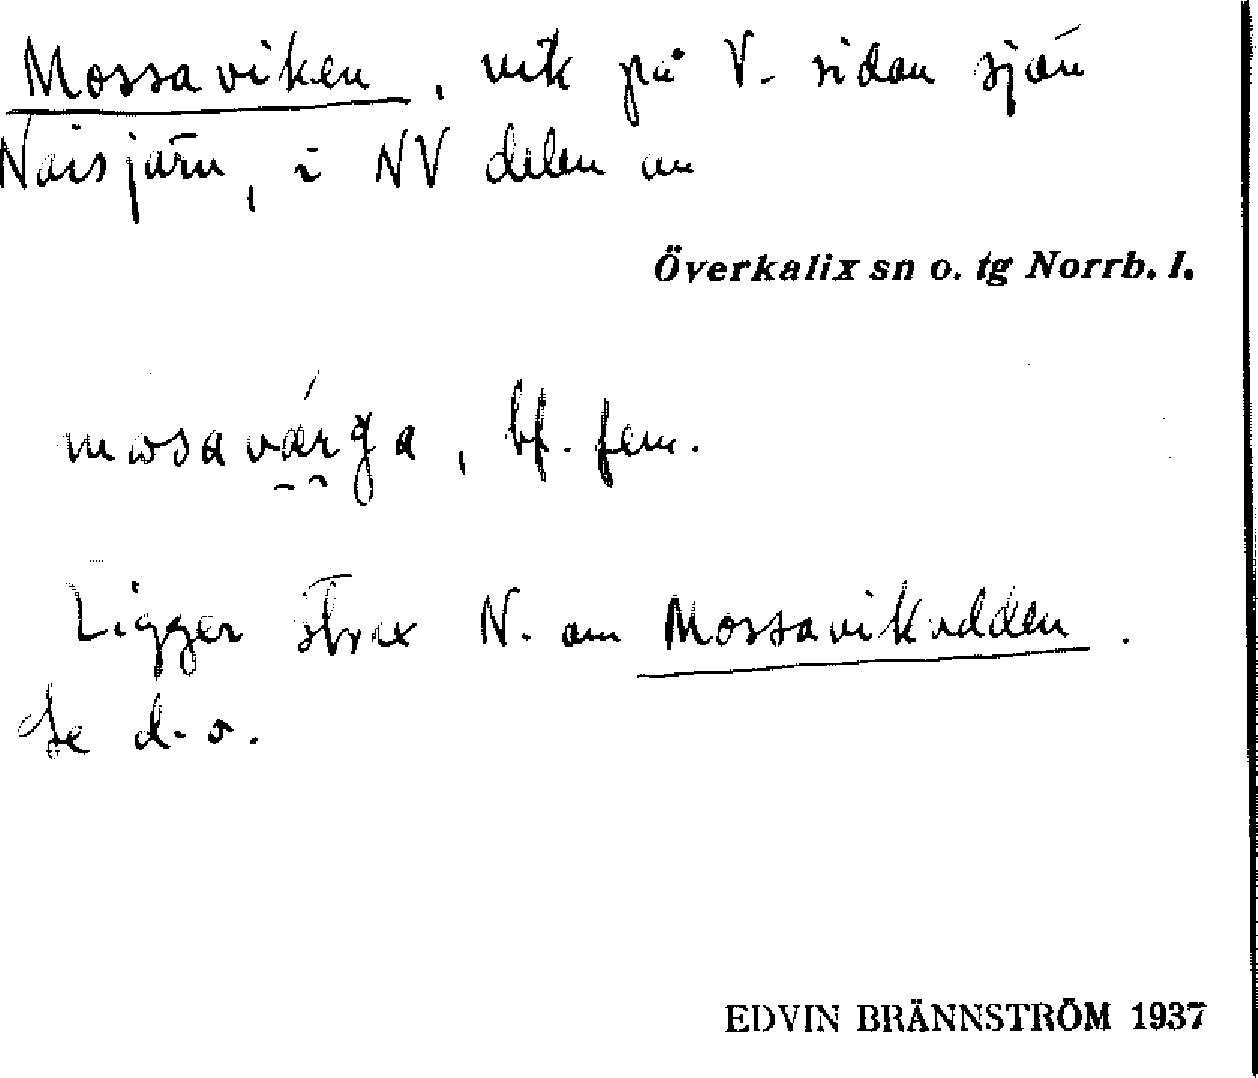 Mossaviken, vik på V. sidan sjön
Naisjärv, i NV delen av
Överkalix sn o. tg Norrb. l.
mosavärga, bf. fem.
Ligger strax N. om Mossavikudden.
Se d. o.
EDVIN BRÄNNSTRÖM 1937